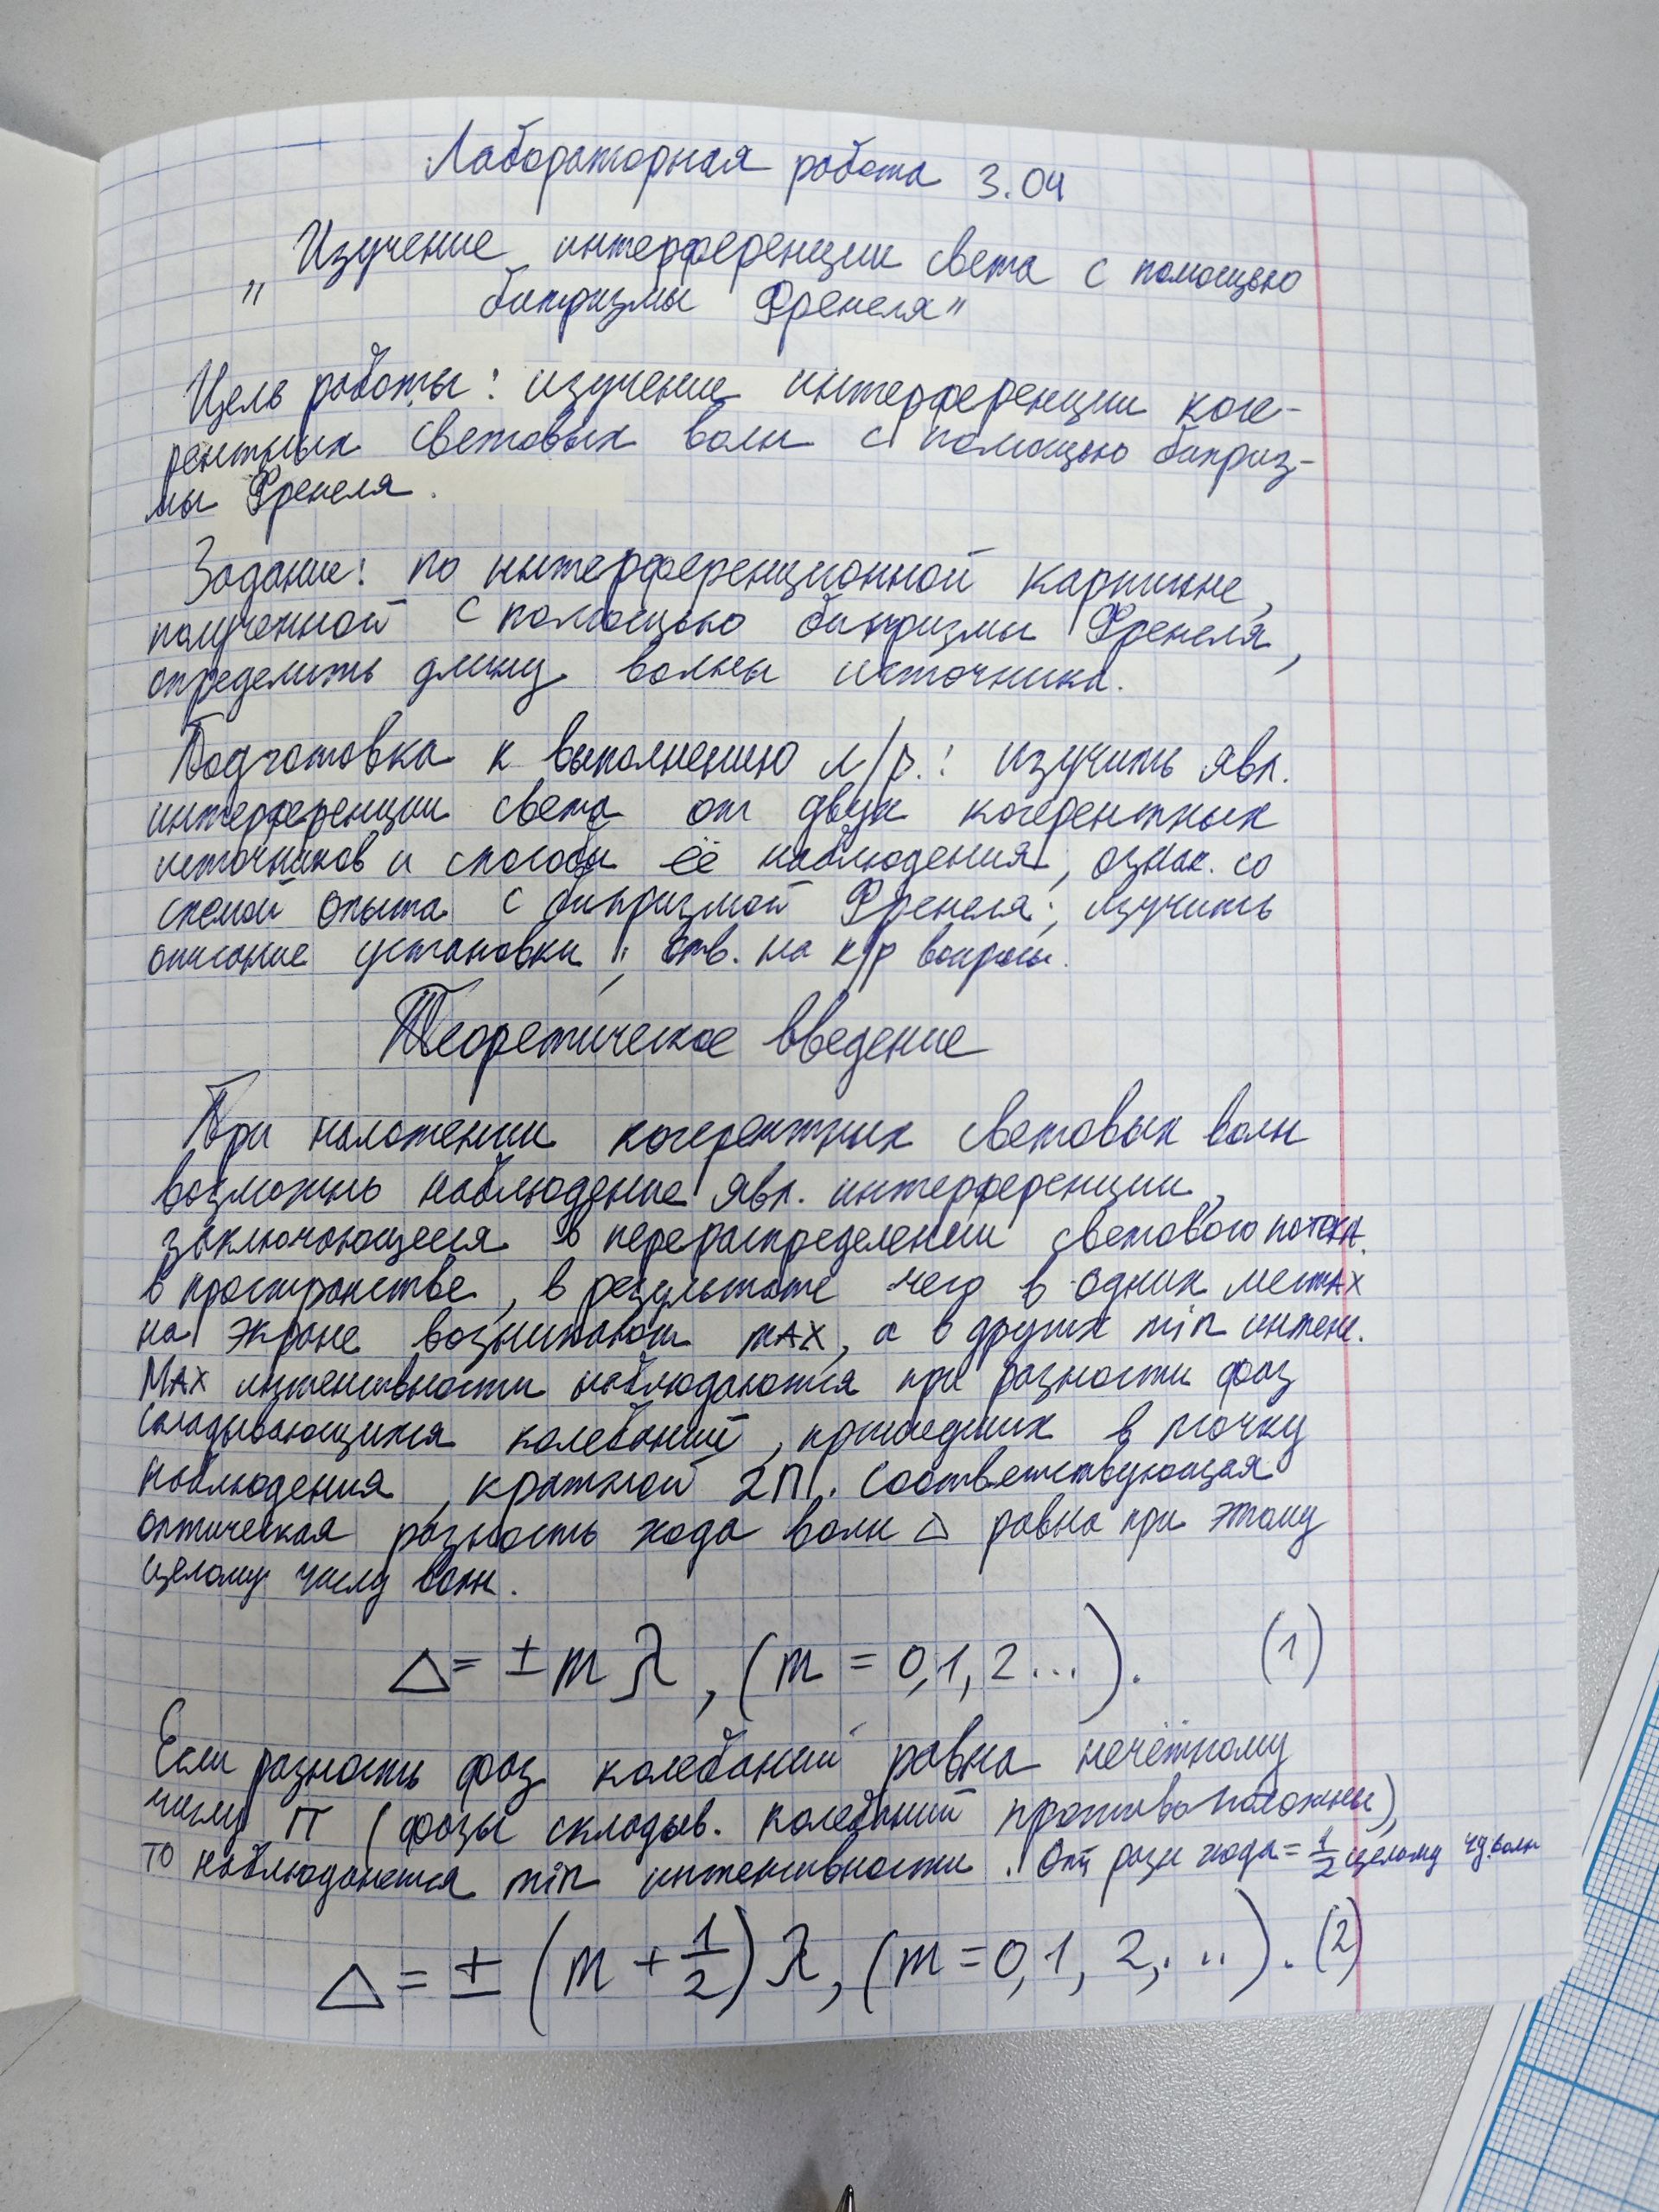 Лабораторная работа 3.04
„Изучение интерференции света с помощью
бипризмы Френеля"
Цель работы: изучение интерференции коге-
рентных световых волн с помощью биприз-
мы Френеля.
Задание: по интерференционной картине,
полученной с помощью бипризмы Френеля,
определить длину волны источника.
Подготовка к выполнению л/р.: изучить явл.
интерференции света от двух когерентных
источников и способы её наблюдения; ознак. со
схемой опыта с бипризмой Френеля; изучить
описание установки; отв. на к/р вопросы.
Теоретическое введение
При наложении когерентных световых волн
возможно наблюдение явл. интерференции,
заключающееся в перераспределении светового потока
в пространстве, в результате чего в одних местах
на экране возникают max, а в других min интенс.
Max интенсивности наблюдаются при разности фаз
складывающихся колебаний, пришедших в точку
наблюдения, кратной 2π. Соответствующая
оптическая разность хода волн Δ равна при этому
целому числу волн.
Δ = ± m λ, (m = 0,1,2...). (1)
Если разность фаз колебаний равна нечётному
числу π (фазы складыв. колебаний противоположны),
то наблюдается min интенсивности. Опт разн хода = 1/2 целому чу волн
Δ = ± (m + 1/2) λ, (m = 0,1,2,...). (2)